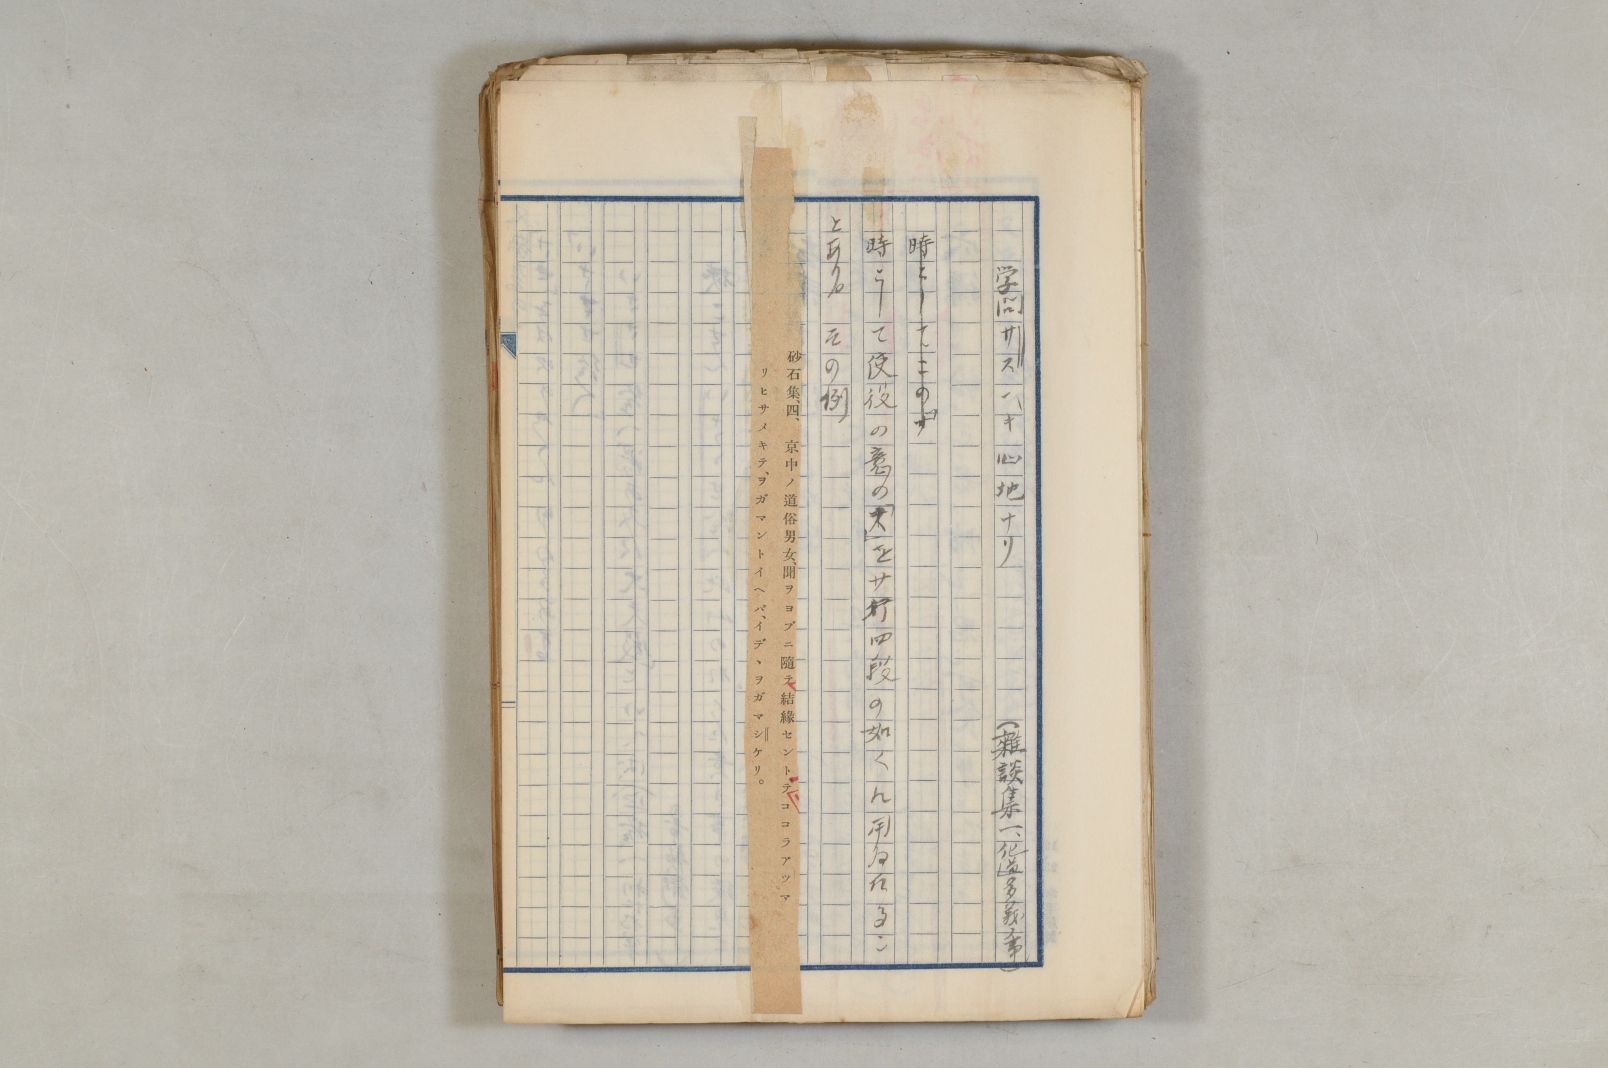 学問サスヘキ心地ナリ (雑談集一、化道多義事)
時としてこの「す」
時として使役の意の「す」をサ行四段の如くに用ゐたるこ
とある その例
砂石集、四、 京中ノ道俗男女、聞ヲヨブニ隨テ結緣セントテココラアツマ
リヒサメキテ、ヲガマントイヘバ、イデヽヲガマシケリ。